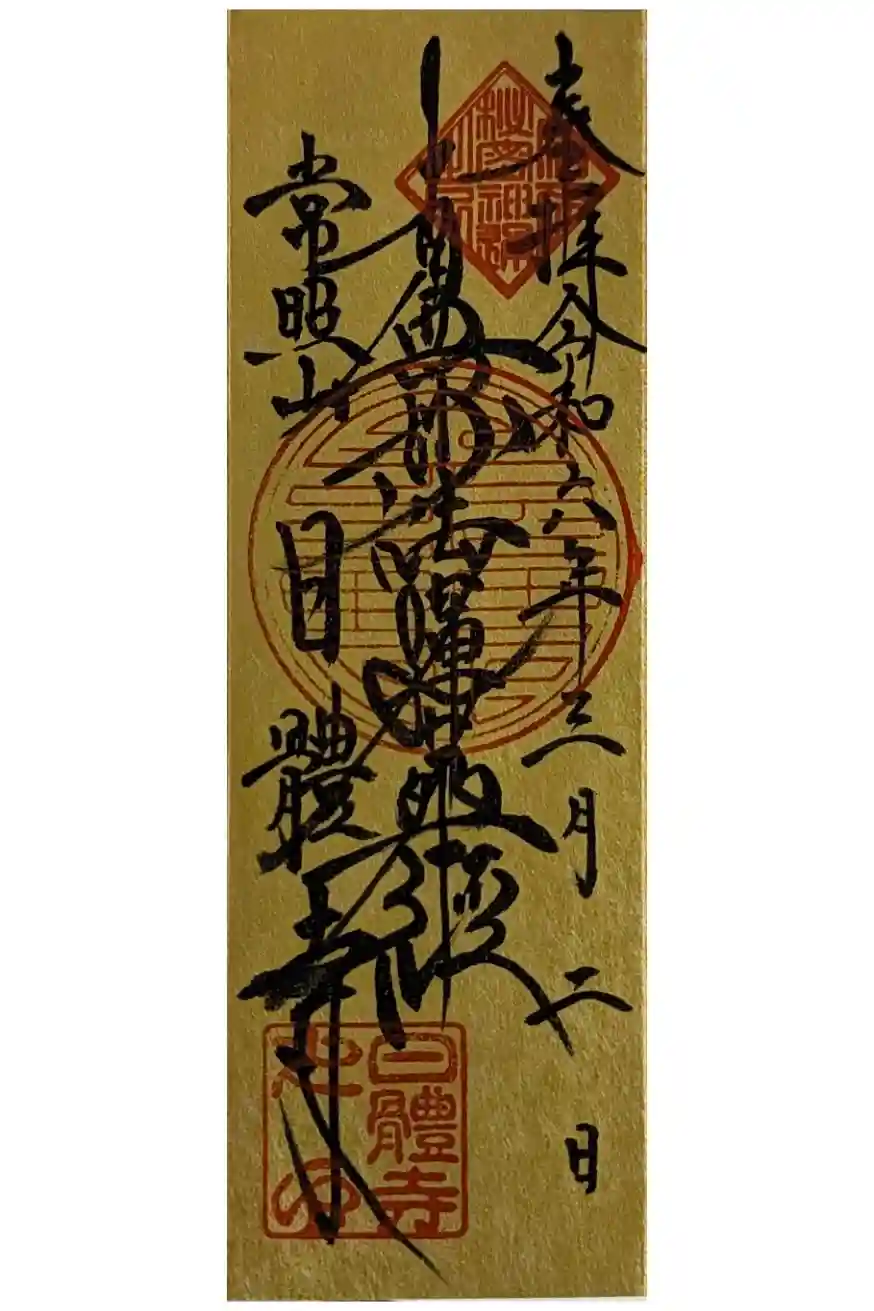 拝 令和六年三月二日
南無妙法蓮華經
常照山 日體寺
日體寺
之印